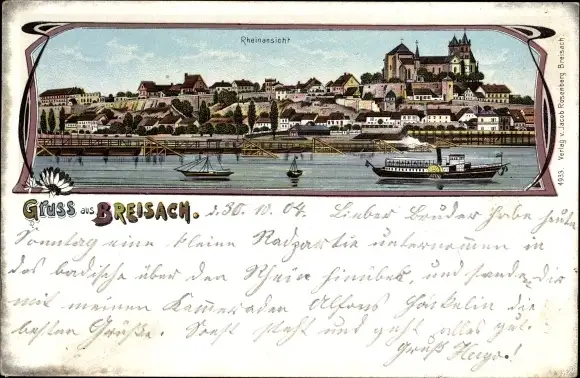 Rheinansicht
4933. Verlag v. Jacob Rosenberg Breisach.
Gruss aus BREISACH. d. 30. 10. 04. Lieber Bruder habe heute
Sonntag eine kleine Radpartie unternommen in
das badische über den Rhein hinüber, und sende Dir
mit meinen Kameraden Alfons die
besten Grüße. Sonst steht und geht alles gut.
Gruß Hugo!